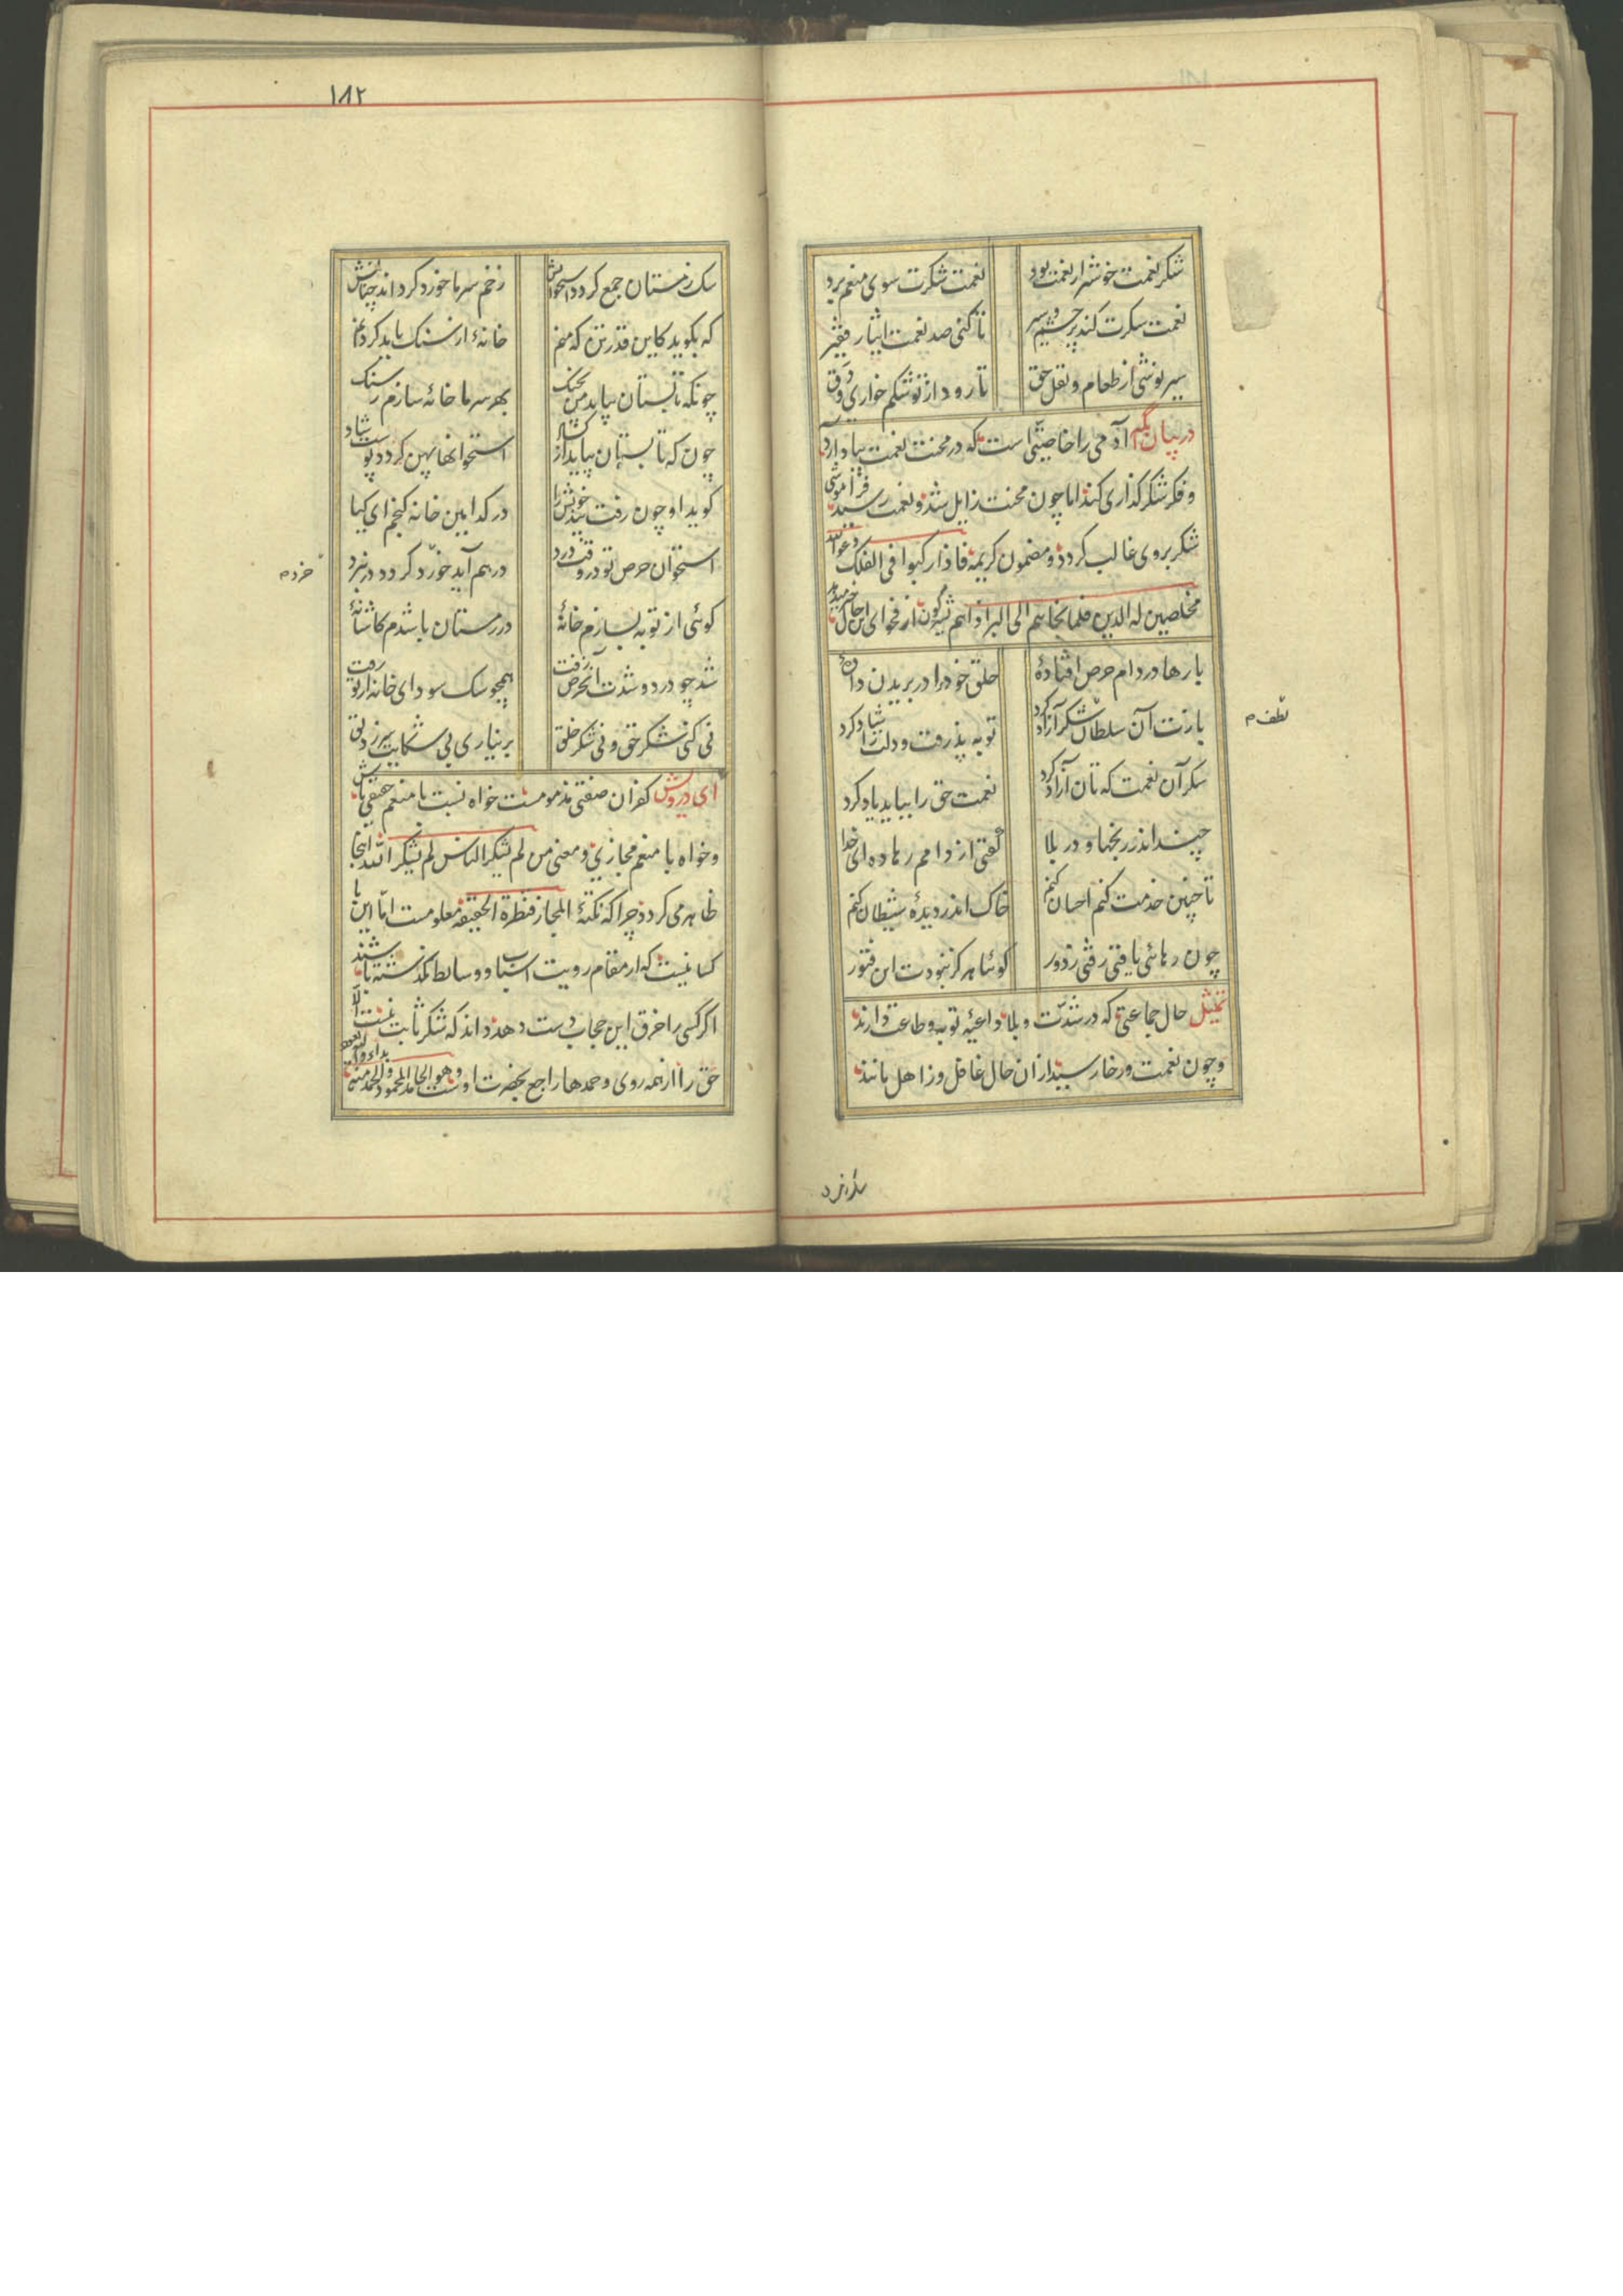 شکر نعمت خوشتر از نعمت بود نعمت شکرت سوی منعم برد
نعمت شکرت کند پر چشم و سیر تا کنی صد نعمت ایثار فقیر
سیر نوشی از طعام و نقل حق تا رود از تو شکم خواری و دق
در بیان آنکه آدمی را خاصیتی است که در محنت نعمت بیاد آرد
و فکر شکر گذاری کند اما چون محنت زایل شد و نعمت رسید فراموشی
شکر بر وی غالب کردد و مضمون کریمه فاذا رکبوا فی الفلک دعوا الله
مخلصین له الدین فلما نجاهم الی البر اذا هم یشرکون از فحوای این حال خبر میدهد
بارها در دام حرص افتادهٔ حلق خود را در بریدن دادهٔ
بازت آن سلطان شکر آزاد کرد توبه پذرفت و دلت را شاد کرد
لطف م
شکر آن نعمت که تان آزاد کرد نعمت حق را بباید یاد کرد
چند اندر رنجها و در بلا گفتی از دامم رها ده ای خدا
تا چنین خدمت کنم احسان کنم خاک اندر دیدهٔ شیطان کنم
چون رهائی یافتی رفتی ز دور کوئیا هرکز نبودت این فتور
تمثیل حال جماعتی که در شدت و بلا داعیه توبه و طاعت دارند
و چون نعمت و رخا رسید از ان حال غافل و زاهل مانند
۱۸۲
سک زمستان جمع کردد استخوانش زخم سرما خورد کرداند چنانش
که بگوید کاین قدر تن که منم خانهٔ از سنک باید کردنم
چونکه تابستان بیاید من بچنک بهر سرما خانهٔ سازم ز سنک
چون که تابستان بیاید از کشاد استخوانها پهن کردد پوست شاد
کوید او چون رفت بیند خویش را در کدامین خانه کنجم ای کیا
استخوان حرص تو در وقت درد درهم آید خورد کردد در نبرد
خرد م
کوئی از توبه بسازم خانهٔ در زمستان باشدم کاشانهٔ
شد چو درد و شدت آن حرص زفت همچو سک سودای خانه از تو رفت
نی کنی شکر حق و نی شکر خلق
ای درویش کفران صفتی مذمومست خواه نسبت با منعم حقیقی باش
و خواه با منعم مجازی و معنی من لم یشکر الناس لم یشکر الله اینجا
ظاهر می کردد چرا که نکتهٔ المجاز قنطرة الحقیقه معلومست اما این با
کسانیست که از مقام رویت اسباب و وسائط نکذشته باشند
اکر کسی را خرق این حجاب دست دهد داند که شکر ثابت نیست الا
حق را از همه روی و حمدها راجع بحضرت اوست و هو الحامد المحمود و الحمد منه